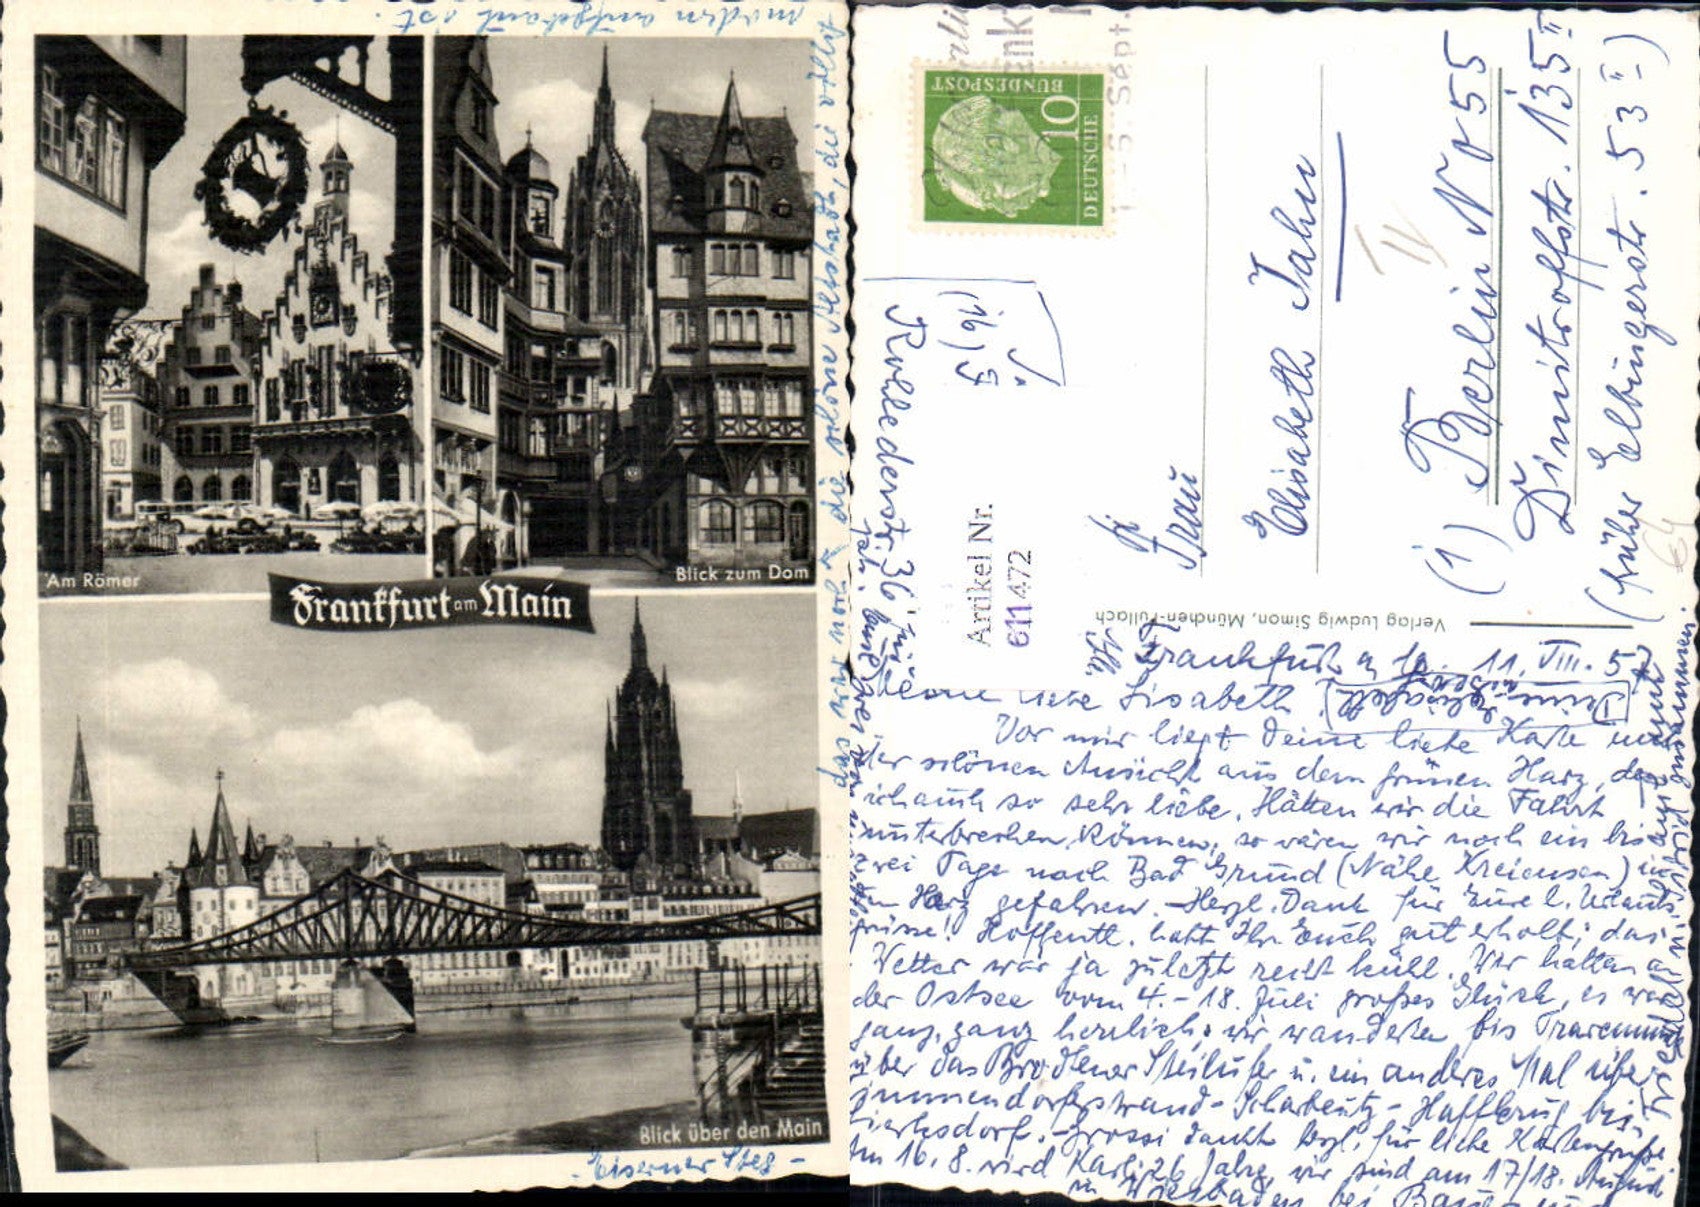 modern aufgebaut ist.
das war noch die schöne Altstadt, die völlig
Am Römer
Blick zum Dom
Frankfurt am Main
Blick über den Main
- Eiserner Steg -
10
DEUTSCHE
BUNDESPOST
Sept.
Frau
Elisabeth Jahn
(1) Berlin NO 55
Dimitroffstr. 135 II
(früher Elbingerstr. 53 II)
IV
(16) F
Rohlederstr. 36
Artikel Nr.
611472
Verlag Ludwig Simon, München-Pullach
Frankfurt a M. 11. VIII. 57
Meine liebe Lisabeth
Vor mir liegt Deine liebe Karte mit
der schönen Ansicht aus dem grünen Harz, den
ich auch so sehr liebe. Hätten wir die Fahrt
unterbrechen können, so wären wir noch ein bis
zwei Tage nach Bad Grund (Nähe Kreiensen) im
Harz gefahren. - Herzl. Dank für Eure l. Urlaubs
grüsse! Hoffentl. habt Ihr Euch gut erholt; das
Wetter war ja zuletzt recht kühl. Wir hatten an
der Ostsee vom 4. - 18. Juli großes Glück, es war
ganz, ganz herrlich; wir wanderten bis Travemünde
über das Brodtener Steilufer u. ein anderes Mal über
Timmendorferstrand - Scharbeutz - Haffkrug bis
Sierksdorf. - Grossi dankt herzl. für liebe Kartengrüße.
Am 16. 8. wird Karli 26 Jahre, wir sind am 17/18. August
in Wiesbaden bei